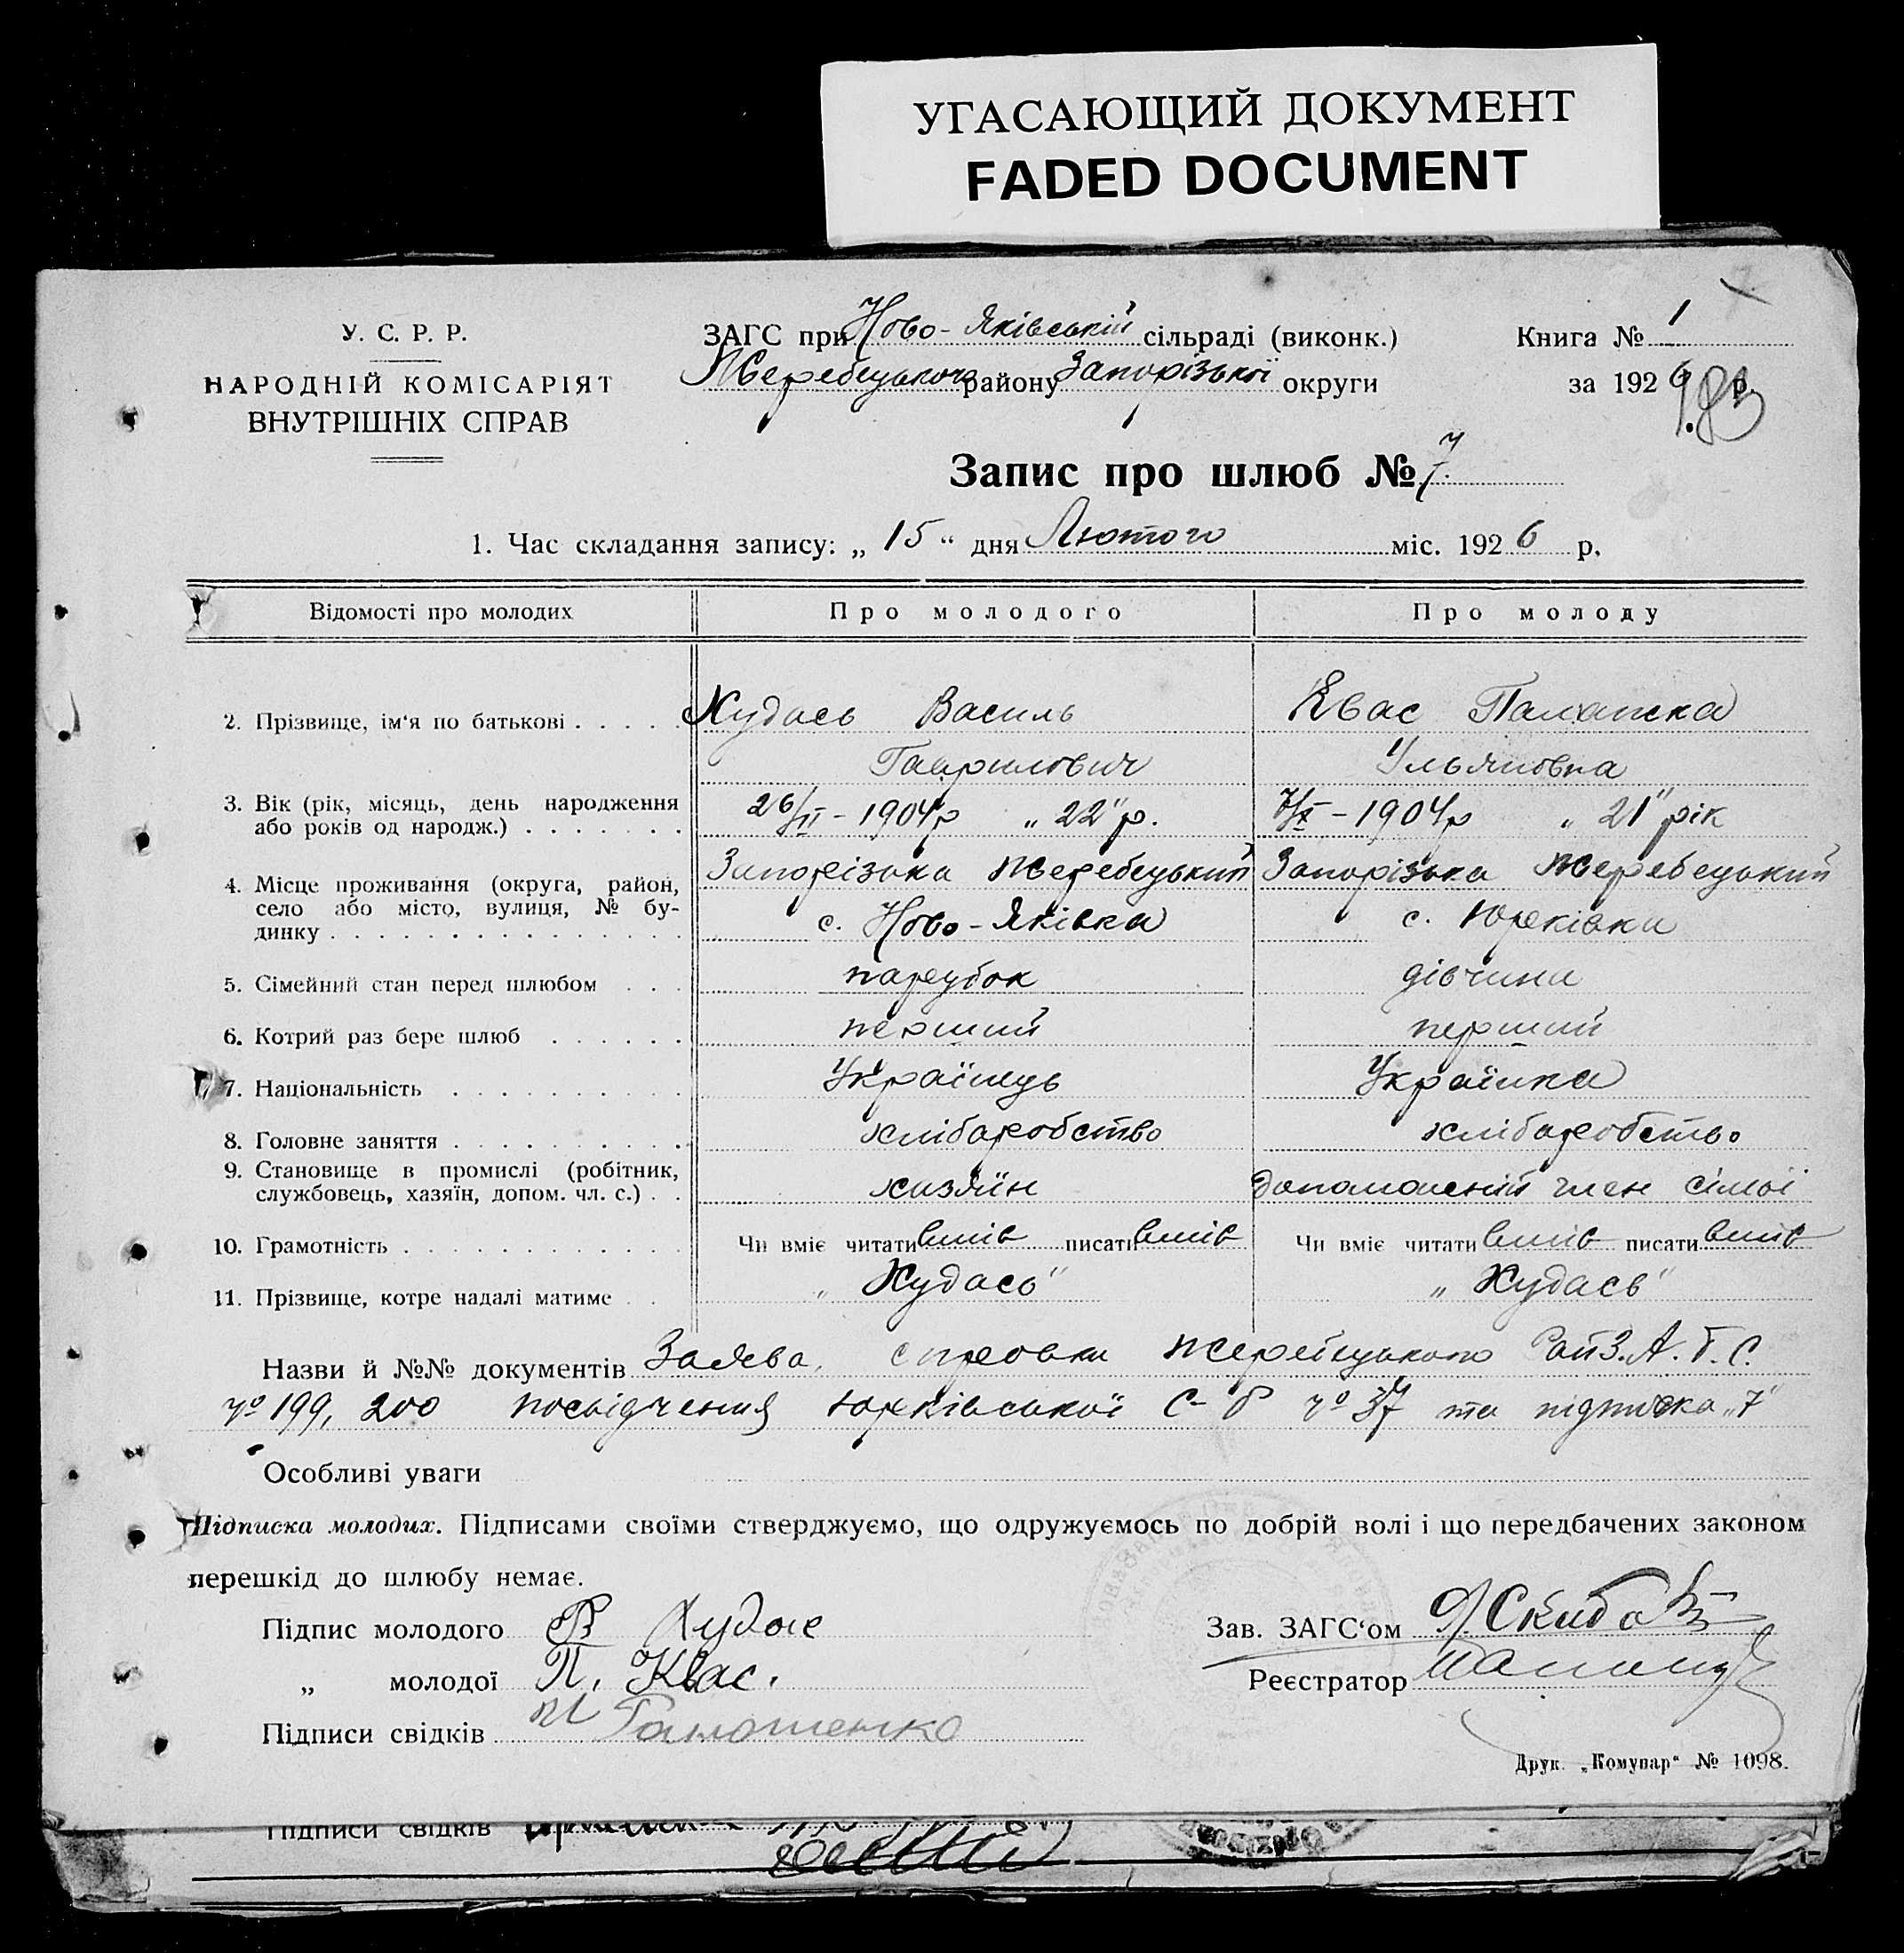 УГАСАЮЩИЙ ДОКУМЕНТ
FADED DOCUMENT
У. С. Р. Р.
НАРОДНІЙ КОМІСАРІЯТ
ВНУТРІШНІХ СПРАВ
ЗАГС при Ново-Яківській сільраді (виконк.)
Жеребецького району Запорізької округи
Книга № 1
за 1926 р.
183
Запис про шлюб № 7.
1. Час складання запису: „ 15 “ дня Лютого міс. 1926 р.
Відомості про молодих Про молодого Про молоду
2. Прізвище, ім‘я по батькові . . . . . Худась Василь Квас Палажка
Гаврилович Ульяновна
3. Вік (рік, місяць, день народження 26/II - 1904 р „22" р. 7/X - 1904 р „21" рік
або років од народж.) . . . . . . .
4. Місце проживання (округа, район, Запорізька Жеребецький Запорізька Жеребецький
село або місто, вулиця, № бу- с. Ново-Яківка с. Юрківка
динку . . . . . . . . . . . . . . . .
5. Сімейний стан перед шлюбом . . . парубок дівчина
6. Котрий раз бере шлюб . . . . . . перший перший
7. Національність . . . . . . . . . . Українець Українка
8. Головне заняття . . . . . . . . . . хліборобство хліборобство
9. Становище в промислі (робітник, хазяїн допоможний член сімьї
службовець, хазяїн, допом. чл. с.) . .
10. Грамотність . . . . . . . . . . . . Чи вміє читати вміє писати вміє Чи вміє читати вміє писати вміє
11. Прізвище, котре надалі матиме . . „Худась" „Худась"
Назви й №№ документів Заява, справки Жеребецького РайЗ.А.Г.С.
№ 199, 200 посвідчення Юрківської С-Р № 37 та підписка „7"
Особливі уваги
Підписка молодих. Підписами своїми стверджуємо, що одружуємось по добрій волі і що передбачених законом
перешкід до шлюбу немає.
Підпис молодого В Худась
Зав. ЗАГС‘ом Скиба
„ молодої П. Квас.
Реєстратор
Підписи свідків
Друк. „Комунар“ № 1098.
Підписи свідків